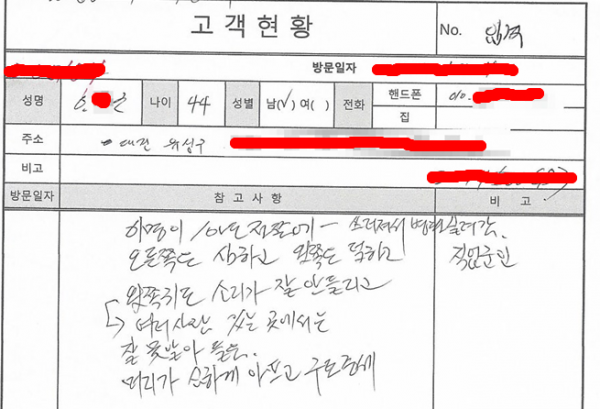 고객현황 No. 입력
방문일자
성명 나이 44 성별 남(√) 여( ) 전화 핸드폰 010.
집
주소 대전 유성구
비고
방문일자 참고사항 비고
이명이 10년전쯤에 - 쓰러져서 병원 실려감.
오른쪽도 심하고 왼쪽도 덜하고 직업군인
왼쪽귀도 소리가 잘 안들리고
→ 여러사람 있는 곳에서는
잘 못알아 들음.
머리가 심하게 아프고 구토증세